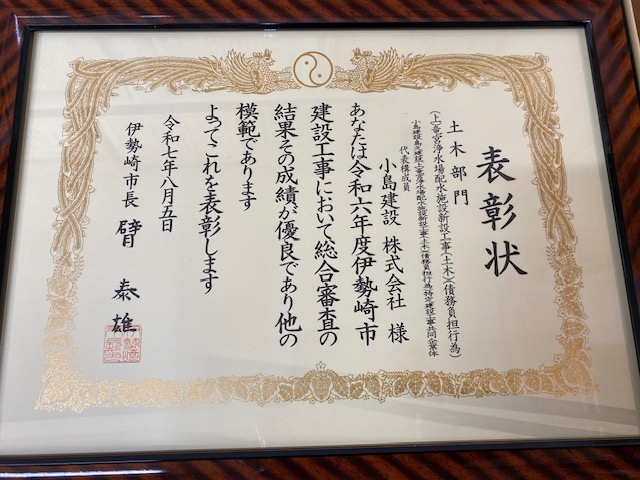 表彰状
土木部門
(上)竜宮浄水場配水施設新設工事(土木)(債務負担行為)
代表構成員
小島建設 株式会社 様
あなたは令和六年度伊勢崎市
建設工事において総合審査の
結果その成績が優良であり他の
模範であります
よってこれを表彰します
令和七年八月五日
伊勢崎市長 臂 泰雄